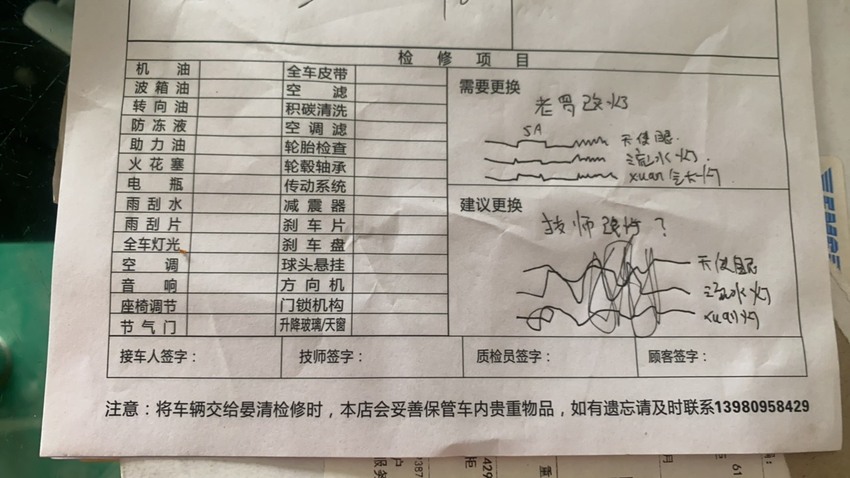 检修项目
机油 全车皮带
波箱油 空滤
转向油 积碳清洗
防冻液 空调滤
助力油 轮胎检查
火花塞 轮毂轴承
电瓶 传动系统
雨刮水 减震器
雨刮片 刹车片
全车灯光 刹车盘
空调 球头悬挂
音响 方向机
座椅调节 门锁机构
节气门 升降玻璃/天窗
需要更换
老罗改灯
5A
天使眼
流水灯
xuan气大灯
建议更换
技师改灯?
天使眼
流水灯
xuan灯
接车人签字: 技师签字: 质检员签字: 顾客签字:
注意:将车辆交给晏清检修时,本店会妥善保管车内贵重物品,如有遗忘请及时联系13980958429